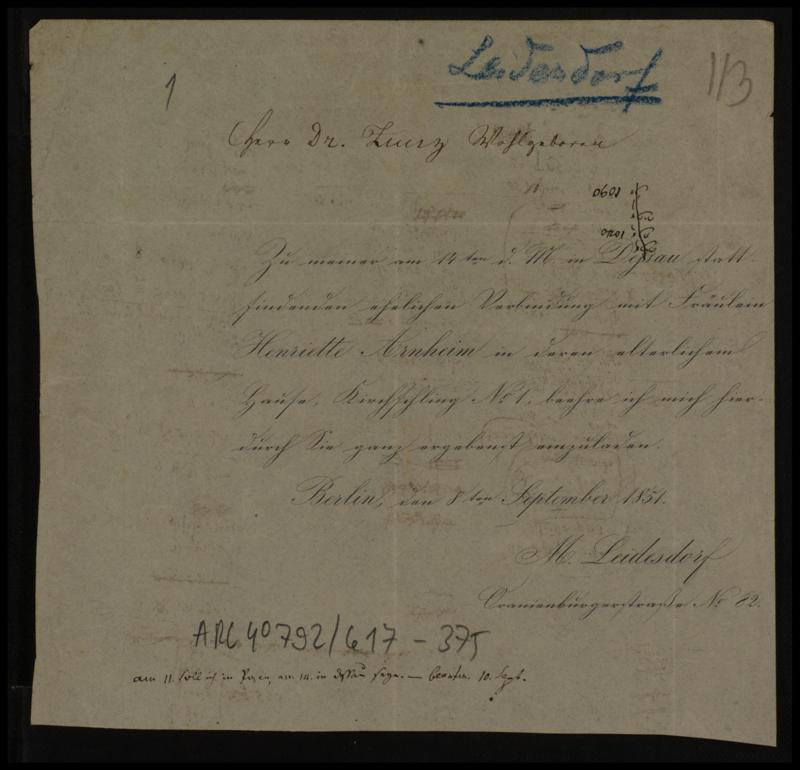 Leidesdorf
113
1
Herr Dr. Zunz Wohlgeboren
Zu meiner am 14ten d. M. in Dessau statt
findenden ehelichen Verbindung mit Fräulein
Henriette Arnheim in deren elterlichem
Hause, No 1, beehre ich mich hier-
durch Sie ganz ergebenst einzuladen.
Berlin, den 8ten September 1851.
M. Leidesdorf
Oranienburgerstraße No 82.
ARC 4o 792/G17 - 375
am 11. soll ich in Posen, am 14. in Dessau seyn. — 10. Sept.